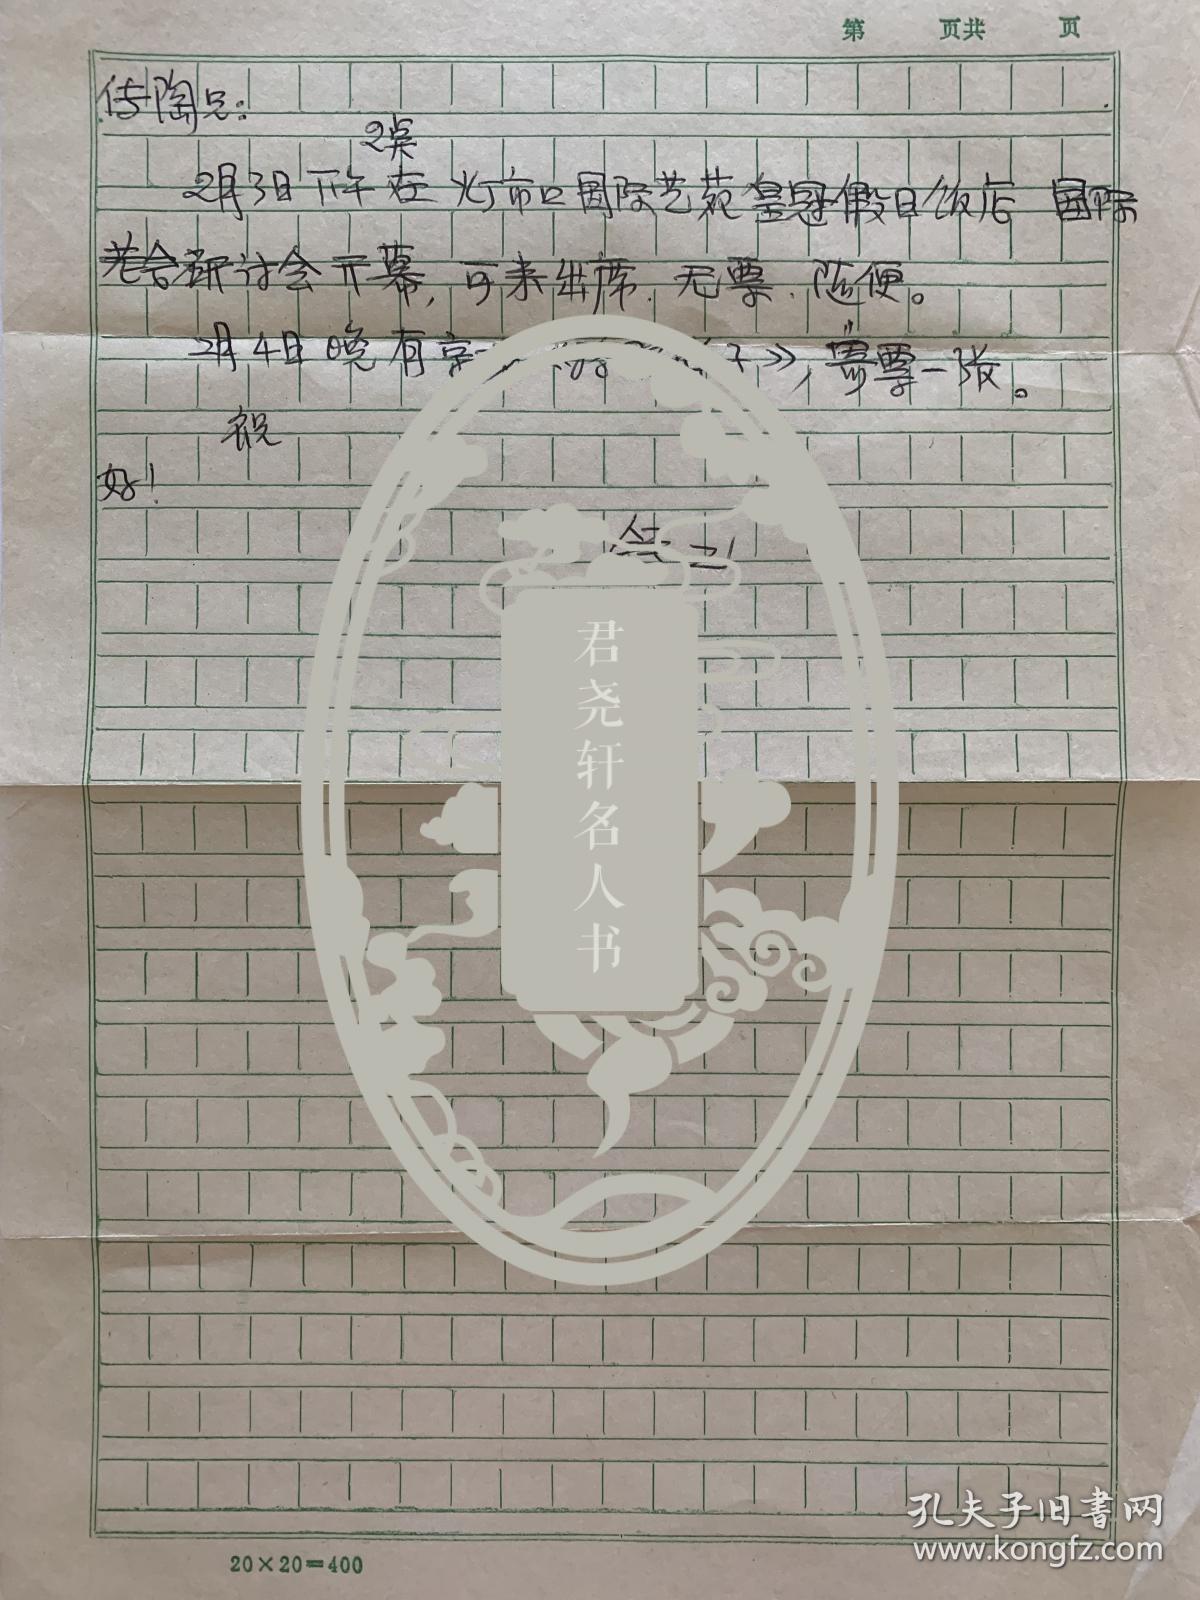 第 页共 页
传陶兄：
2点
2月3日下午在灯市口国际艺苑皇冠假日饭店 国际
老舍研讨会开幕，可来出席．无票．随便。
2月4日晚有京 》，寄票一张。
祝
好！
君尧轩名人书
孔夫子旧书网
www.kongfz.com
20×20=400